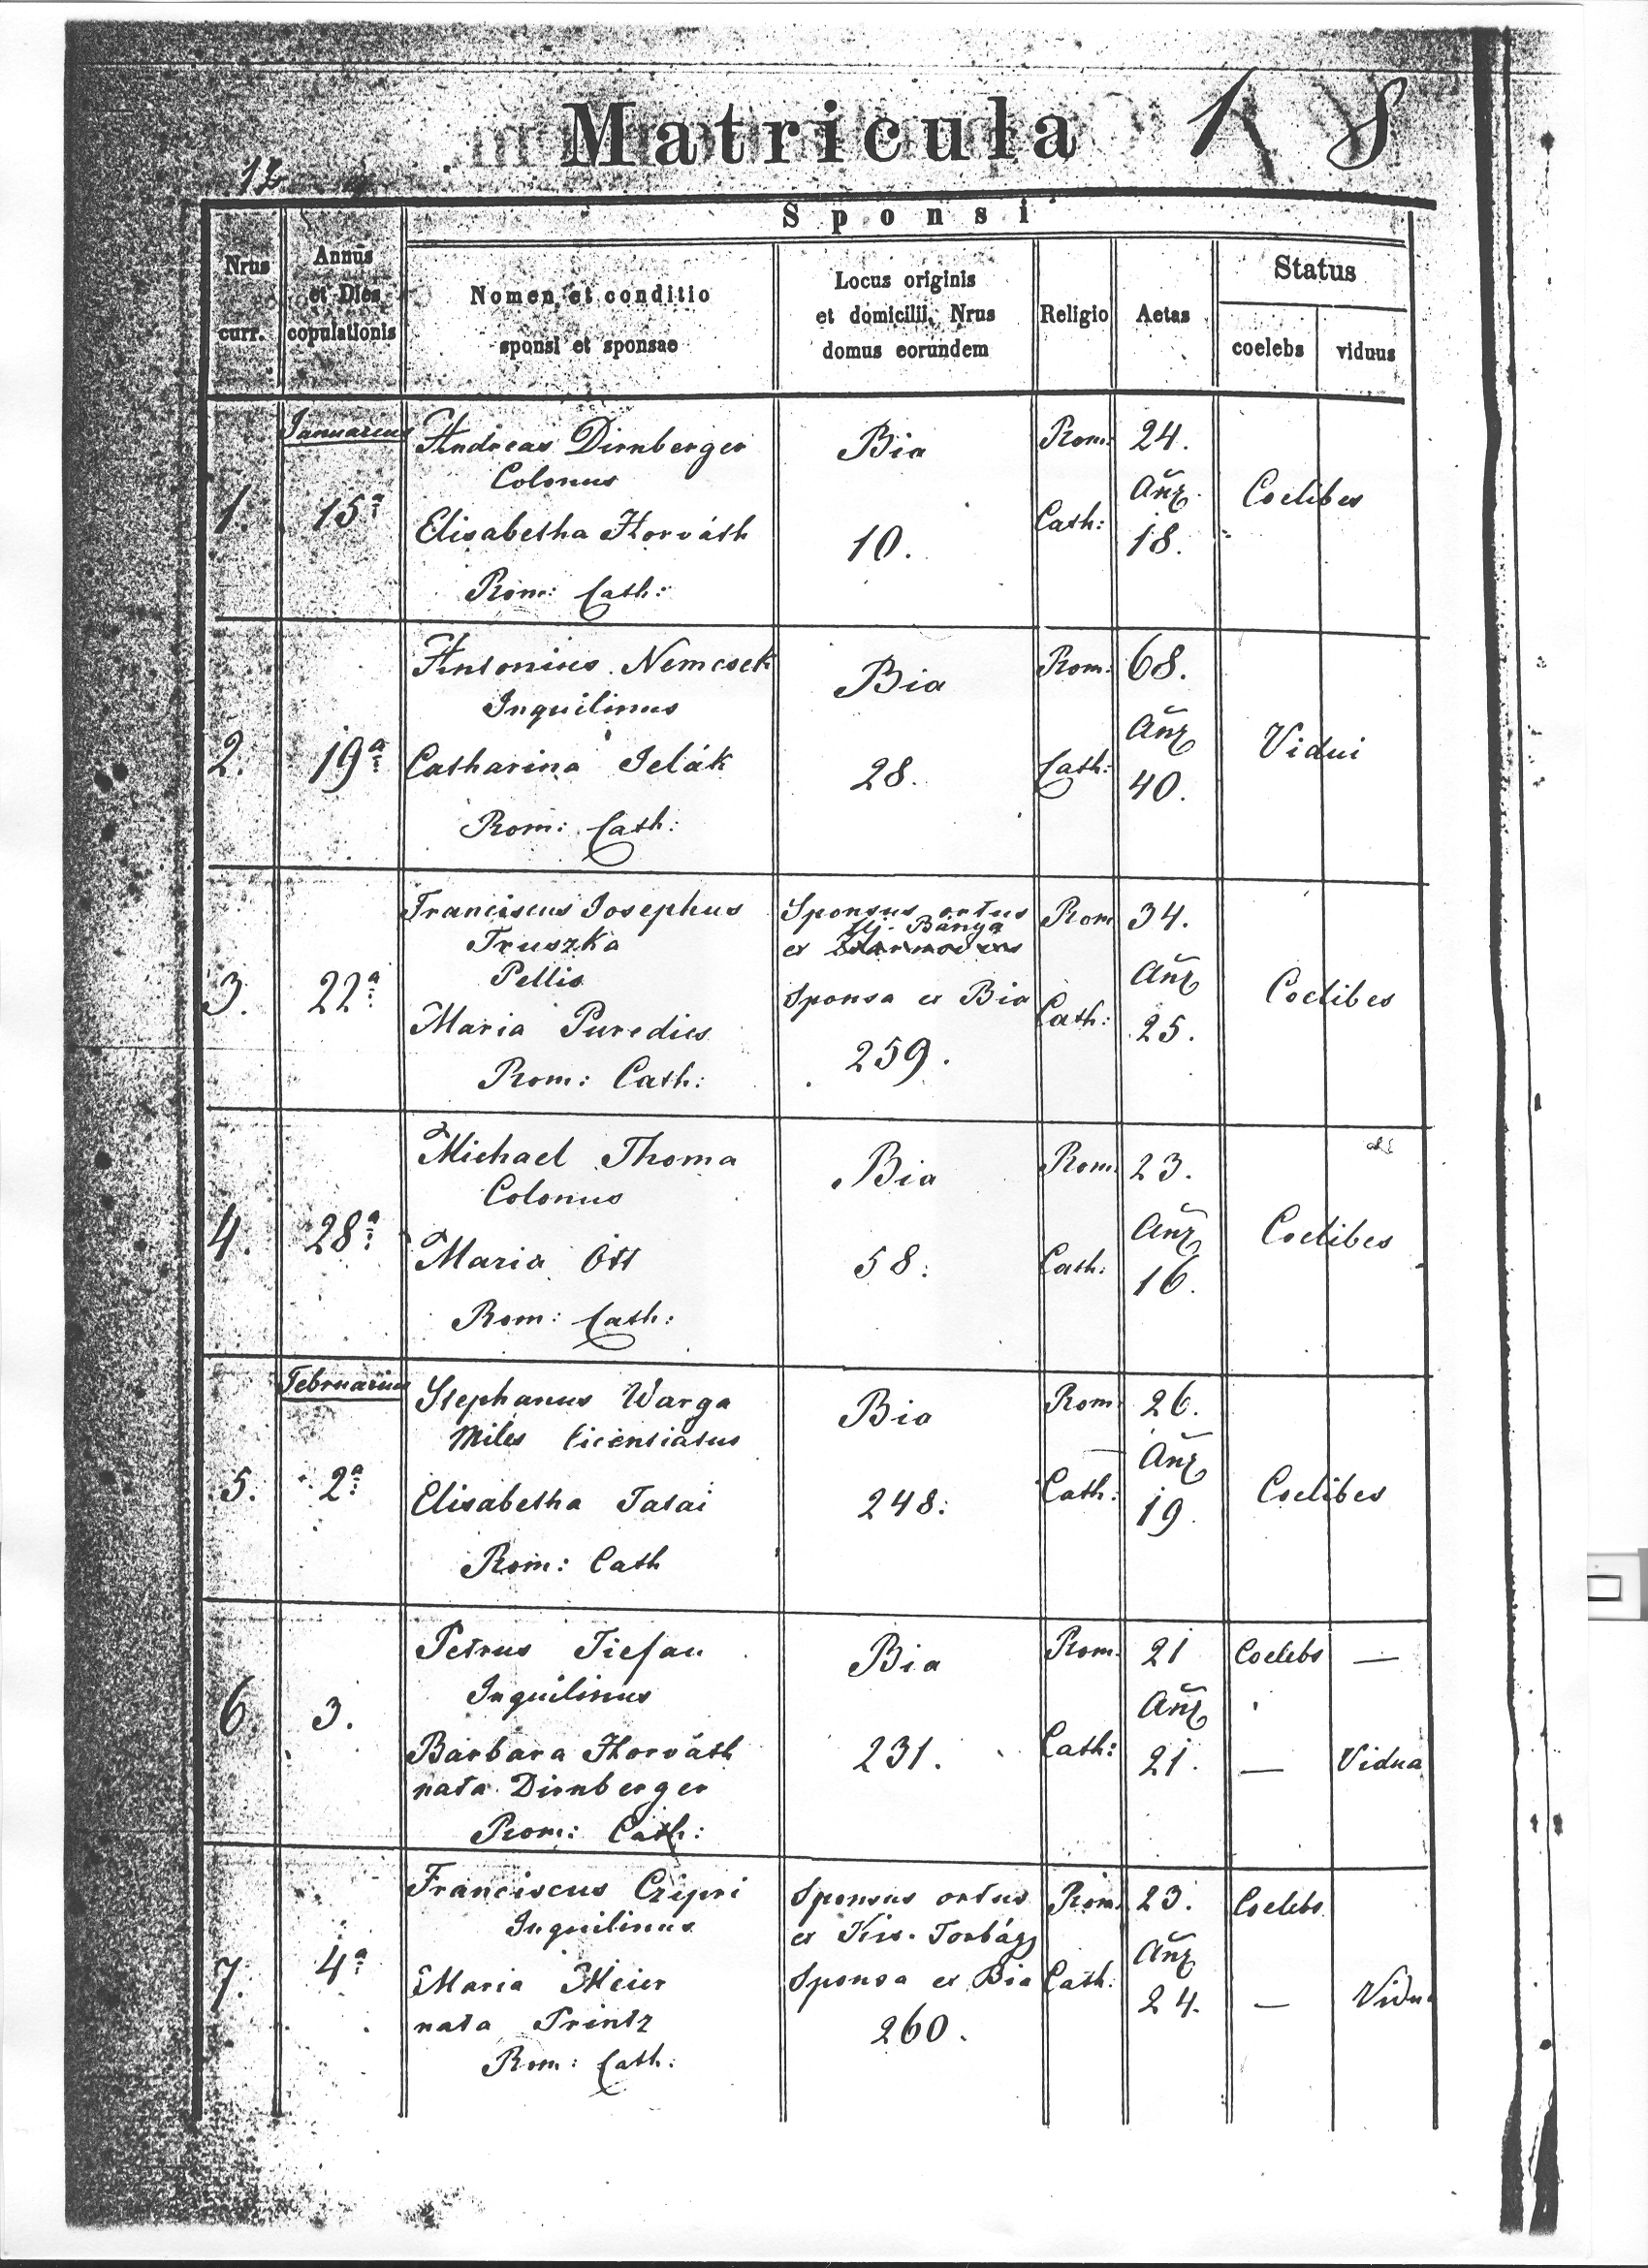 Matricula 1 8
12
Sponsi
Nrus
curr.
Annus
et Dies
copulationis
Nomen et conditio
sponsi et sponsae
Locus originis
et domicilii, Nrus
domus eorundem
Religio
Aetas
Status
coelebs
viduus
Januarius
1.
15ª
Andreas Dirnberger
Colonus
Elisabetha Horváth
Rom: Cath:
Bia
10.
Rom:
Cath:
24.
Añz
18.
Coelibes
2.
19ª
Antonius Nemcsek
Inquilinus
Catharina Jelák
Rom: Cath:
Bia
28.
Rom:
Cath:
68.
Añz
40.
Vidui
3.
22ª
Franciscus Josephus
Truszka
Pellio
Maria Puredics
Rom: Cath:
Sponsus ortus
Uj-Bánya
ex
Sponsa ex Bia
259.
Rom
Cath:
34.
Añz
25.
Coelibes
4.
28ª
Michael Thoma
Colonus
Maria Ott
Rom: Cath:
Bia
58:
Rom.
Cath:
23.
Añz
16.
Coelibes
Februarius
5.
2ª
Stephanus Warga
Miles licentiatus
Elisabetha Tatai
Rom: Cath
Bia
248:
Rom
Cath:
26.
Añz
19.
Coelibes
6.
3.
Petrus Tiefau
Inquilinus
Barbara Horváth
nata Dirnberger
Rom: Cath:
Bia
231.
Rom.
Cath:
21
Añz
21.
Coelebs —
— Vidua
7.
4ª
Franciscus Czipri
Inquilinus
Maria Meier
nata Printz
Rom: Cath:
Sponsus ortus
ex Kis-Torbágy
Sponsa ex Bia
260.
Rom.
Cath:
23.
Añz
24.
Coelebs
— Vidu